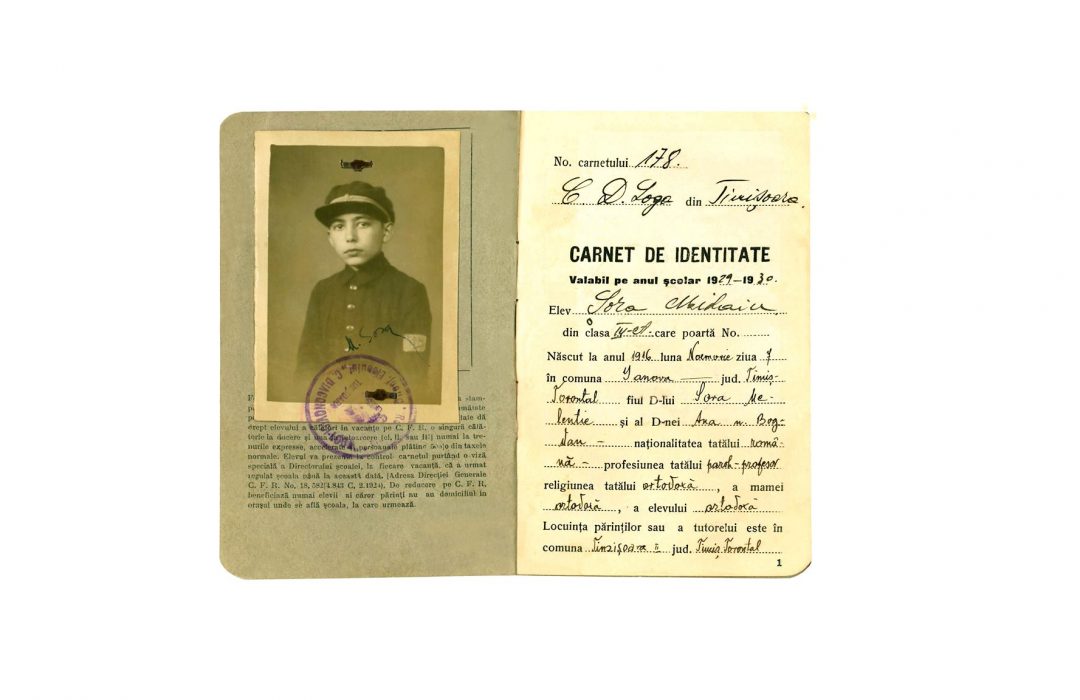 M. Șora
LICEUL "C. DIACONOVICI
stam-
drept elevului a călători în vacanțe pe C. F. R. o singură călă-
torie la ducere și una
nurile expresse, accelerate personale plătind din taxele
normale. Elevul va prezenta la control carnetul purtând o viză
specială a Directorului școalei, la fiecare vacanță, că a urmat
regulat școala până la această dată. (Adresa Direcției Generale
C. F. R. No. 18, 582/4.843 C, 2.1924). De reducere pe C. F. R.
beneficiază numai elevii ai căror părinți nu au domiciliul în
orașul unde se află școala, la care urmează.
No. carnetului 178.
C D. Loga din Timișoara.
CARNET DE IDENTITATE
Valabil pe anul școlar 1929–1930.
Elev Șora Mihaiu
din clasa IV-A care poartă No.
Născut la anul 1916 luna Noemvrie ziua 7
în comuna Ianova — jud. Timiș
Torontal fiul D-lui Șora Me-
lentie și al D-nei Ana n. Bog-
dan – naționalitatea tatălui romă-
nă – profesiunea tatălui paroh-profesor
religiunea tatălui ortodoxă, a mamei
ortodoxă, a elevului ortodoxă
Locuința părinților sau a tutorelui este în
comuna Timișoara II jud. Timiș Torontal
1